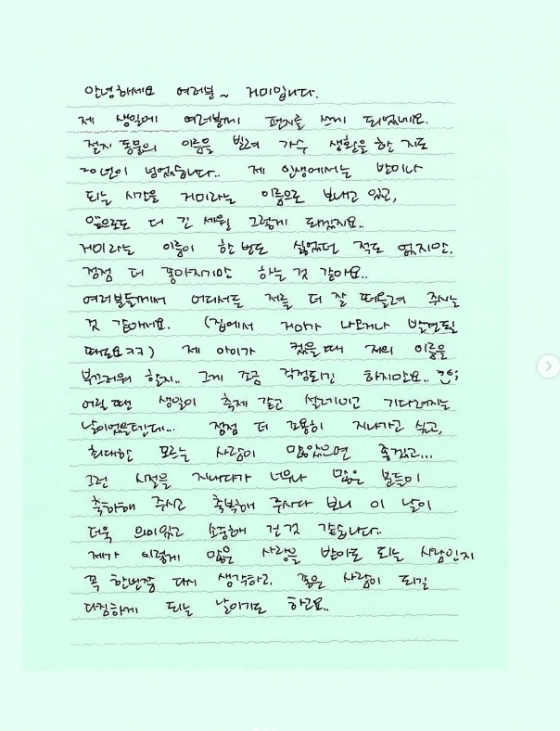 안녕하세요 여러분~ 거미입니다.
제 생일에 여러분께 편지를 쓰게 되었네요.
절지 동물의 이름을 빌려 가수 생활을 한 지도
20년이 넘었습니다.. 제 인생에서는 반이나
되는 시간을 거미라는 이름으로 보내고 있고,
앞으로도 더 긴 세월 그렇게 되겠지요..
거미라는 이름이 한 번도 싫었던 적도 없지만.
점점 더 좋아지기만 하는 것 같아요..
여러분들께서 어디서든 저를 더 잘 떠올려 주시는
것 같아서요. (집에서 거미가 나오거나 발견될
때도요ㅋㅋ) 제 아이가 컸을때 저의 이름을
부끄러워 할지.. 그게 조금 걱정되긴 하지만요..
어릴 땐 생일이 축제 같고 설레이고 기다려지는
날이었을텐데... 점점 더 조용히 지나가고 싶고,
최대한 모르는 사람이 많았으면 좋겠고...
그런 시절을 지내다가 너무나 많은 분들이
축하해 주시고 축복해 주시다 보니 이 날이
더욱 의미있고 소중해 진 것 같습니다..
제가 이렇게 많은 사랑을 받아도 되는 사람인지
꼭 한번쯤 다시 생각하고, 좋은 사람이 되길
다짐하게 되는 날이기도 하고요..